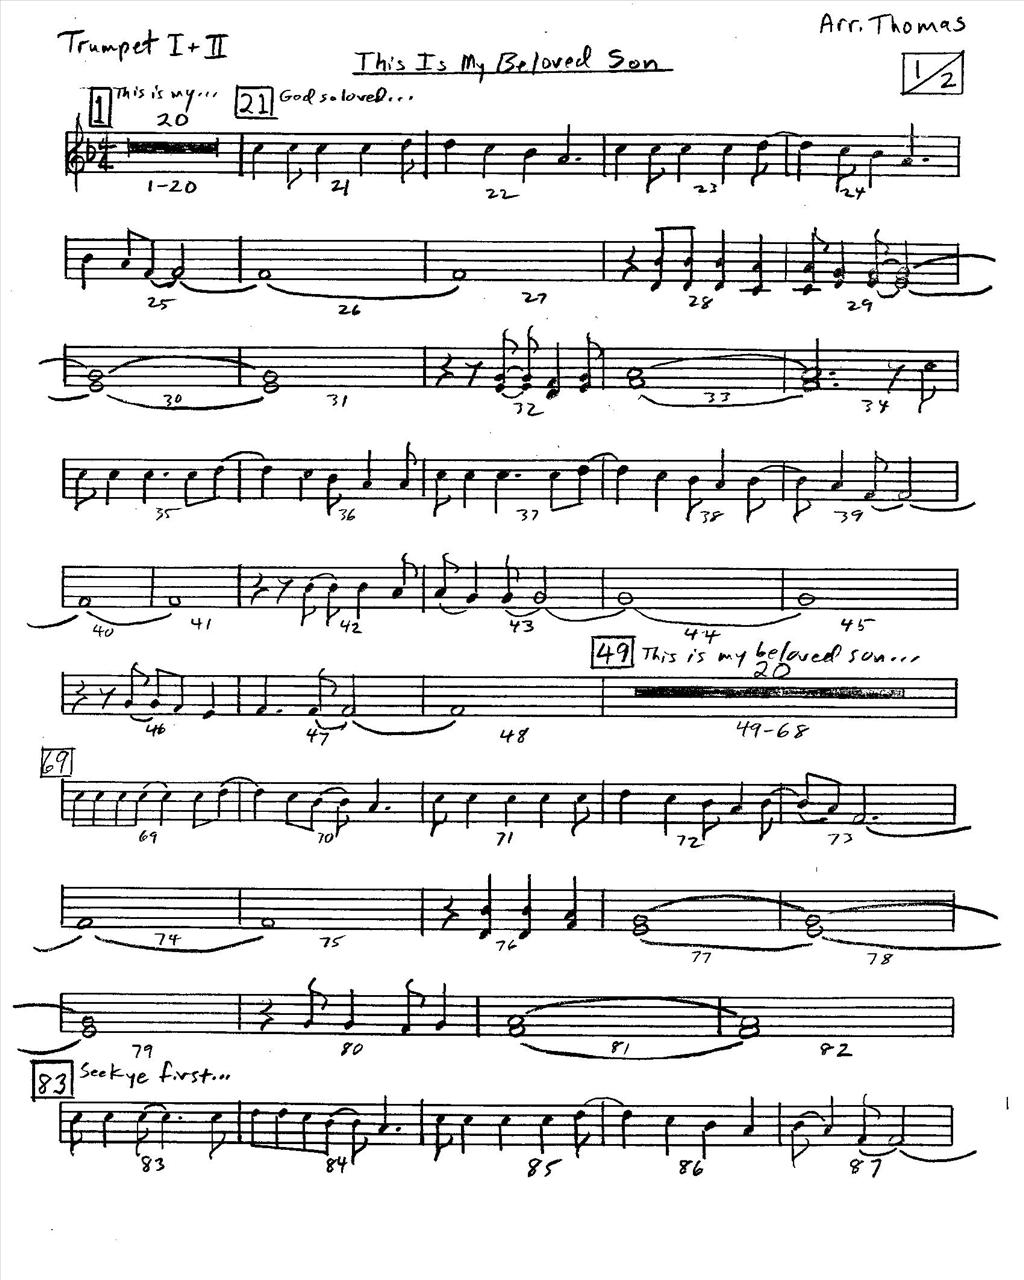 Arr. Thomas
Trumpet I + II
This Is My Beloved Son
1/2
1 This is my... 21 God so loved...
20
4
4
1-20 21 22 23 24
25 26 27 28 29
30 31 32 33 34
35 36 37 38 39
40 41 42 43 44 45
49 This is my beloved son...
20
46 47 48 49-68
69
69 70 71 72 73
74 75 76 77 78
79 80 81 82
83 Seek ye first...
83 84 85 86 87